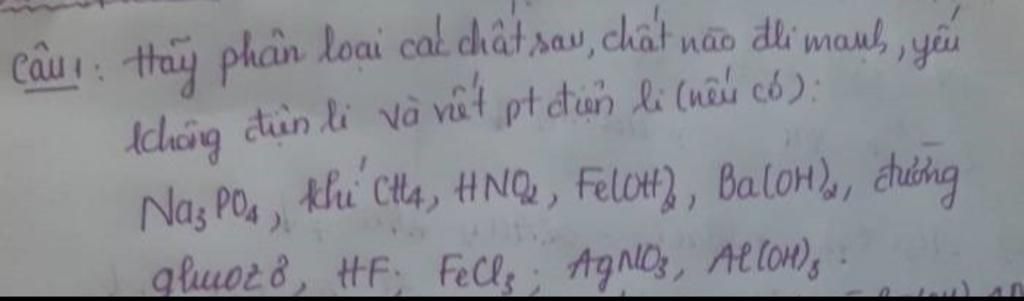 Câu 1: Hãy phân loại các chất sau, chất nào đli mạnh, yếu
không điện li và viết pt điện li (nếu có):
Na₃PO₄, khí CH₄, HNO₂, Fe(OH)₂, Ba(OH)₂, đường
glucozơ, HF, FeCl₃, AgNO₃, Al(OH)₃.